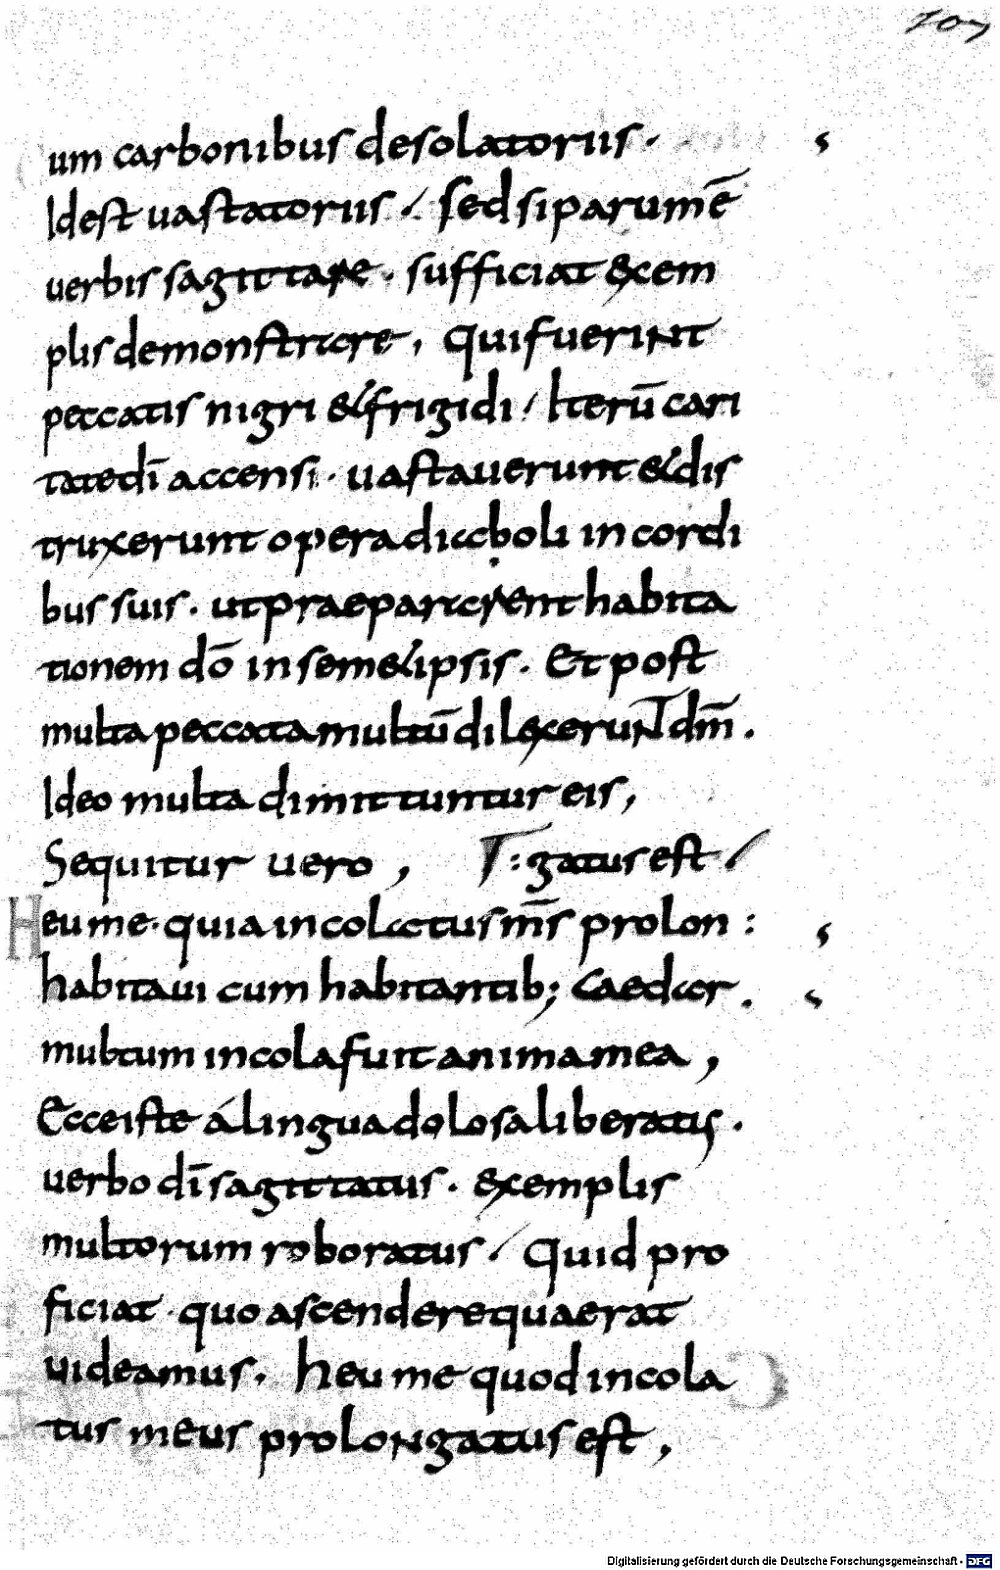 207
um carbonibus desolatoriis .
Id est uastatoriis / . Sed si parum ē
uerbis sagittare . sufficiat & exem
plis demonstrare , Qui fuerint
peccatis nigri & frigidi / Iterū cari
tate dī accensi . uastauerunt & dis
truxerunt opera diaboli in cordi
bus suis . ut praepararent habita
tionem dō in semetipsis . Et post
multa peccata multū dilexerunt dm̄ .
Ideo multa dimittuntur eis ,
Sequitur uero , T : gatus est /
Heu me . quia incolatus ms̄ prolon :
habitaui cum habitantib; Caedar .
multum incola fuit anima mea ,
Ecce iste á lingua dolosa liberatus .
uerbo dī sagittatus . exemplis
multorum roboratus / Quid pro
ficiat . quo ascendere quaerat
uideamus . Heu me quod incola
tus meus prolongatus est ,
Digitalisierung gefördert durch die Deutsche Forschungsgemeinschaft - DFG